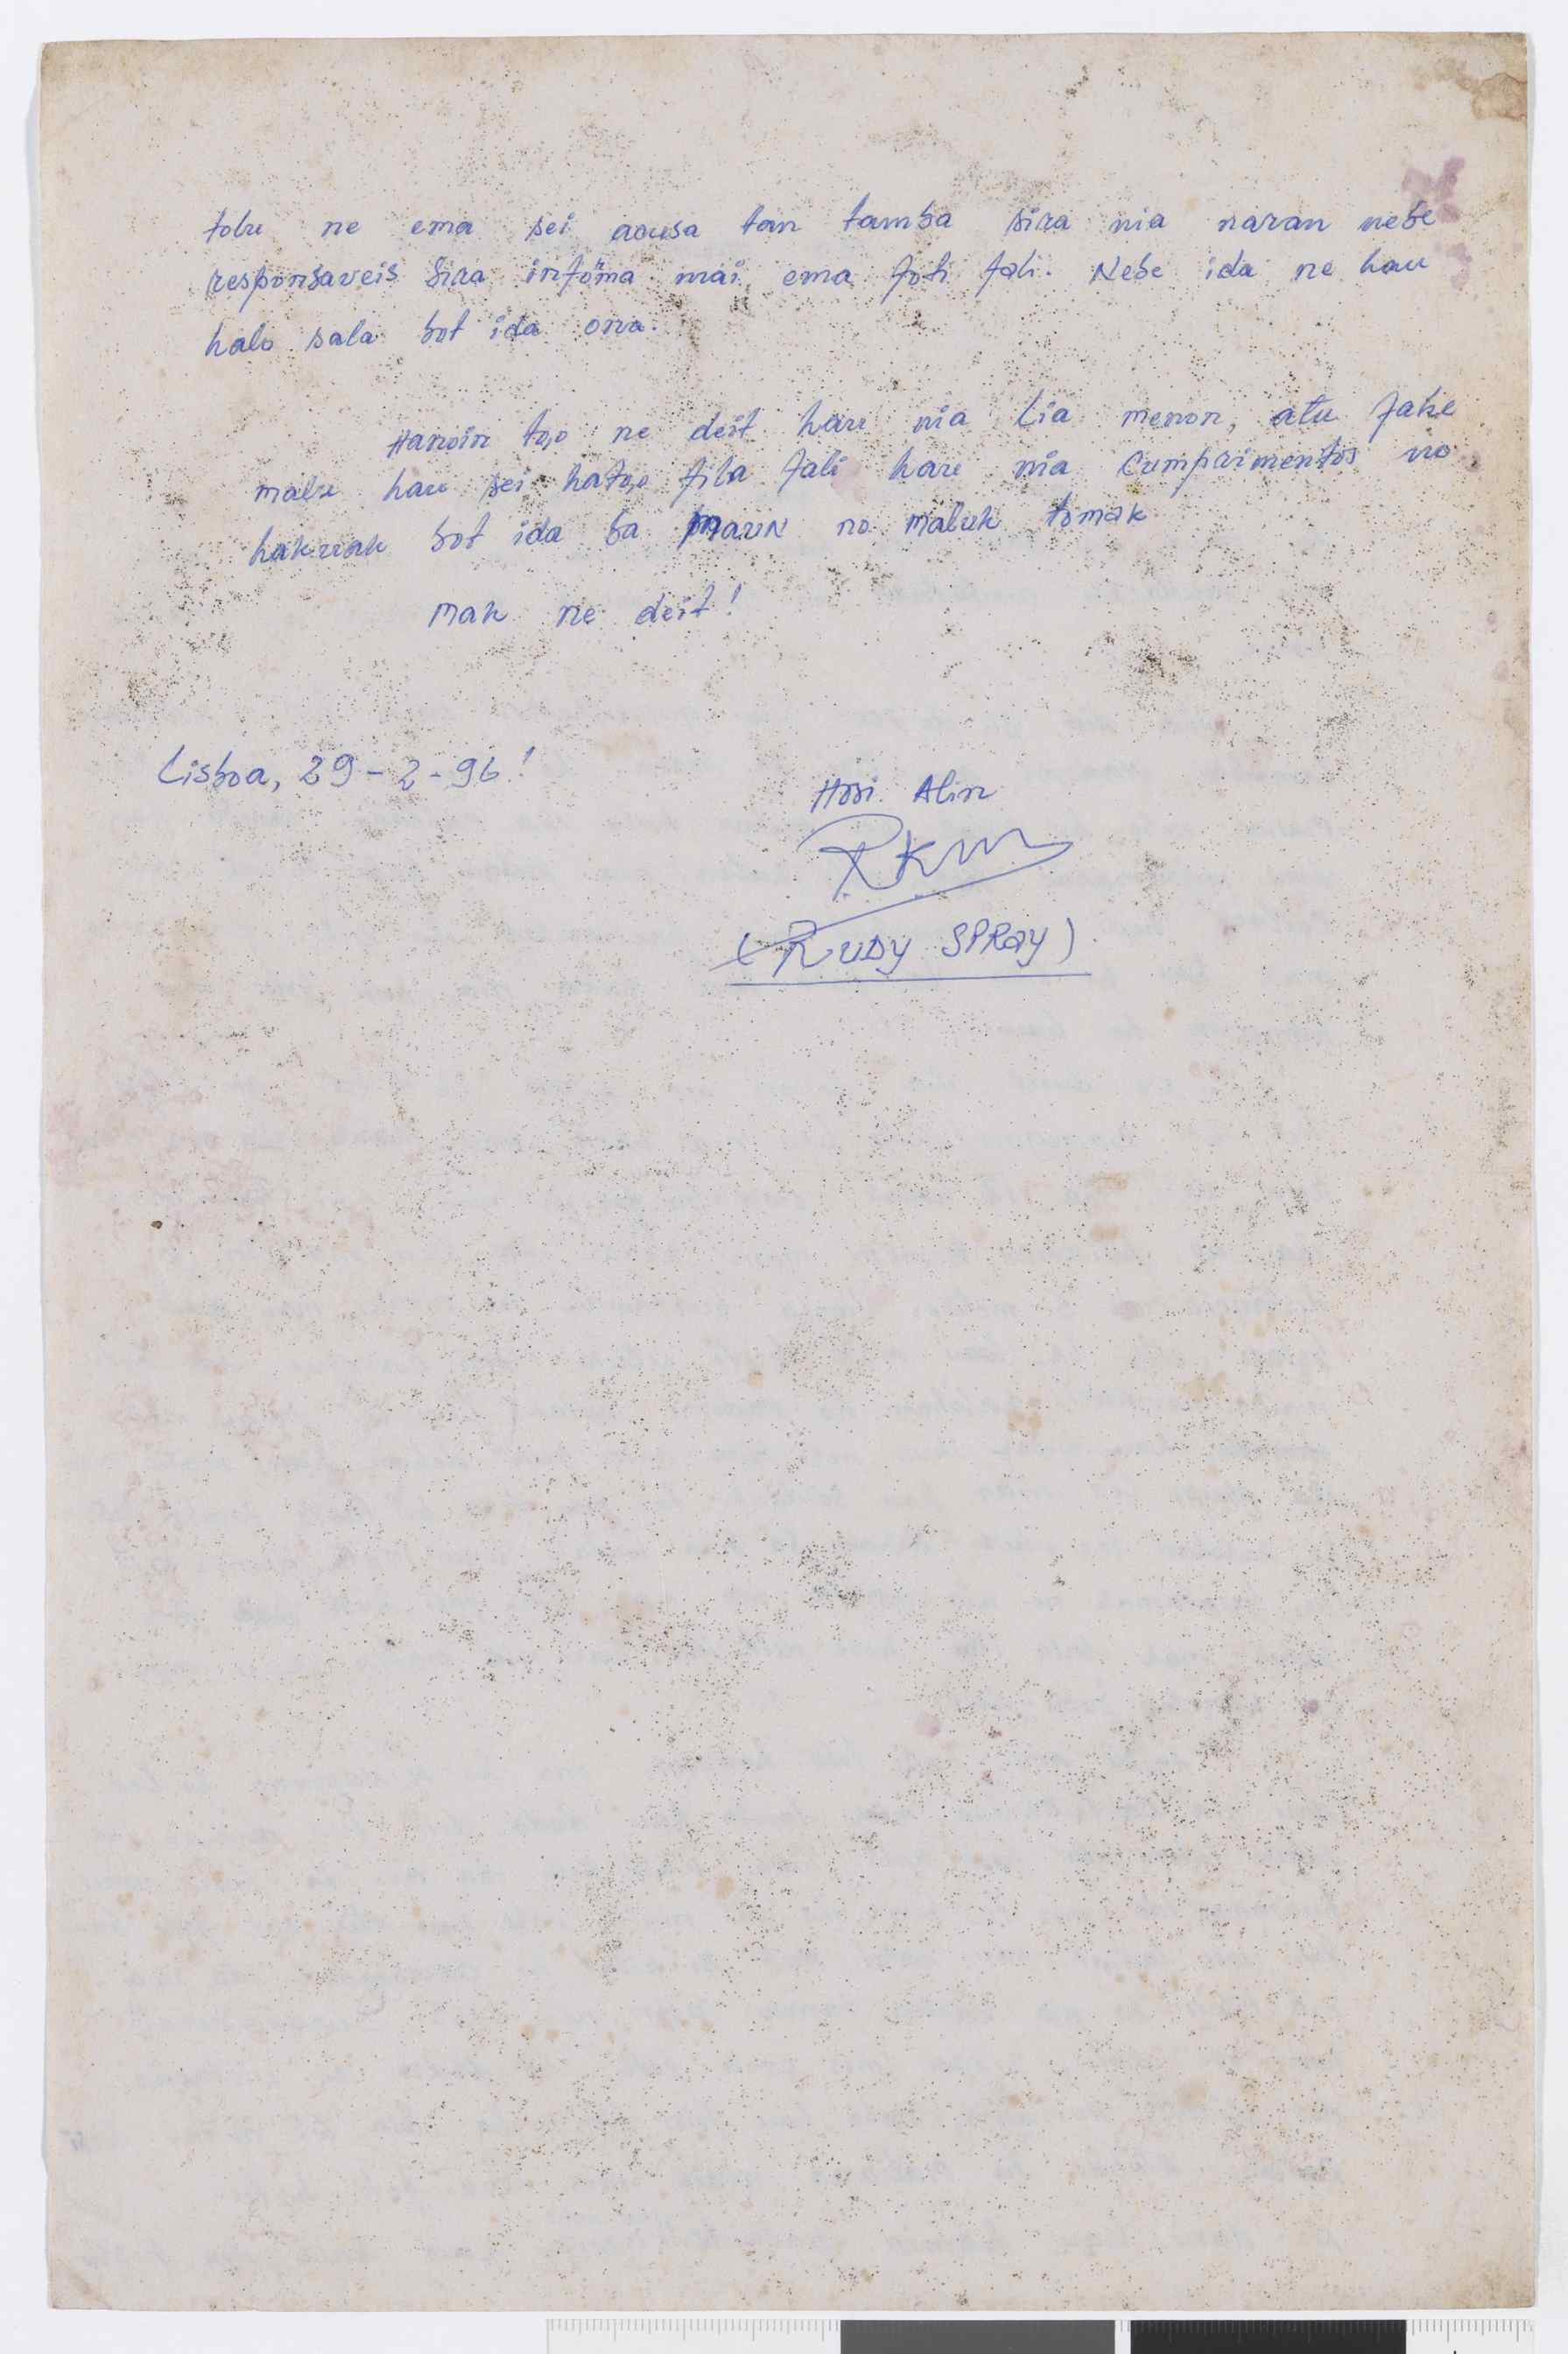 tolu ne ema sei acusa tan tamba sira nia naran nebe
responsaveis sira infôma mai ema foti fali. Nebe ida ne hau
halo sala bot ida ona.
Hanoin to,o ne deit hau nia lia menon, atu fahe
malu hau sei hato,o fila fali hau nia cumprimentos no
hakuak bot ida ba Maun no maluk tomak
Mak ne deit!
Lisboa, 29-2-96!
Hosi Alin
RKM
(RUDY SPRAY)